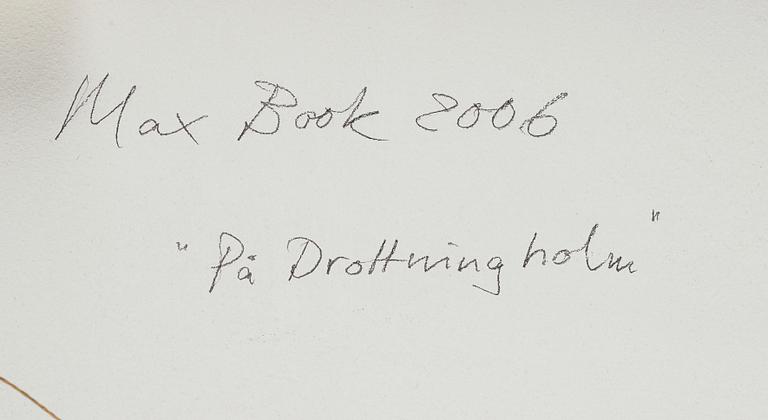 Max Book 2006
"På Drottningholm"